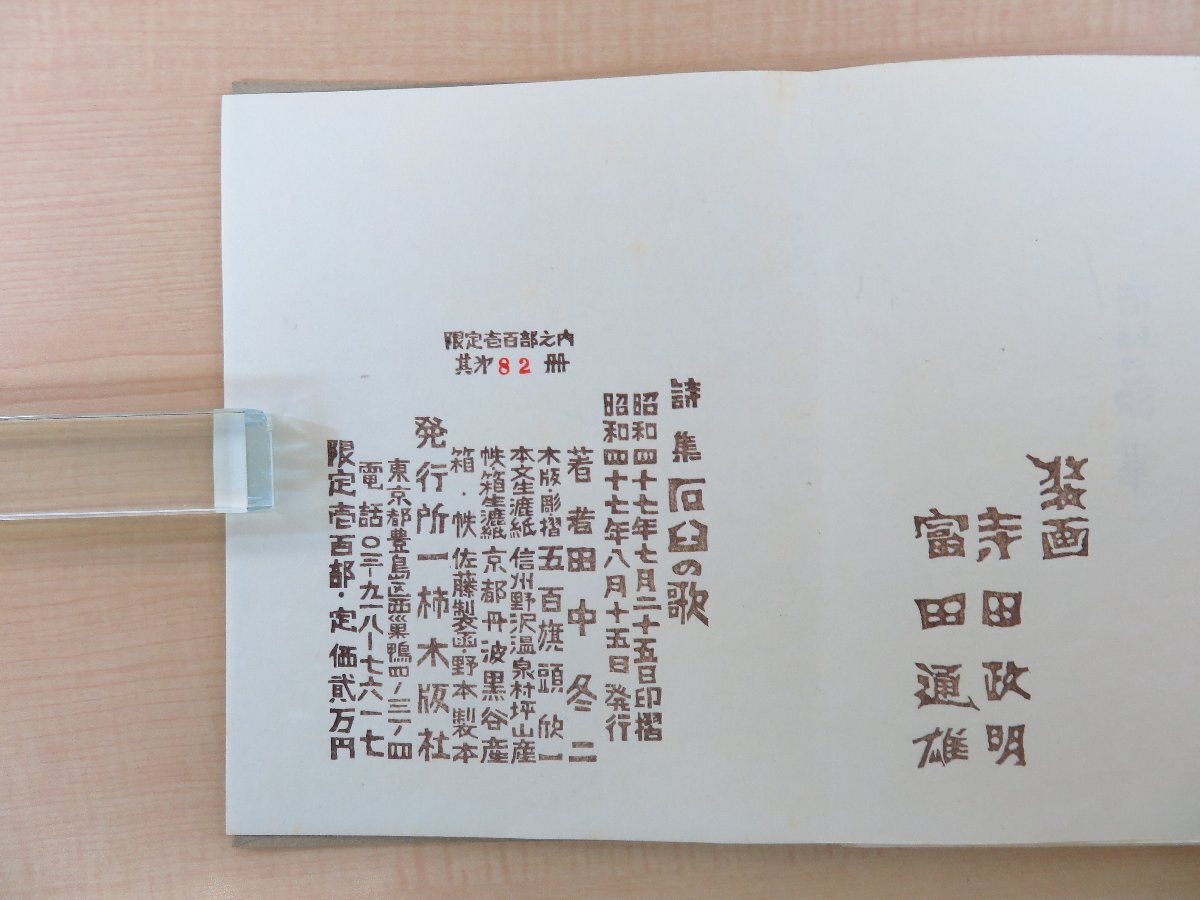 装画
寺田政明
富田通雄
限定壱百部之内
其㐧82冊
詩集石臼の歌
昭和四十七年七月二十五日印摺
昭和四十七年八月十五日発行
著者田中冬二
木版・彫摺五百旗頭欣一
本文生漉紙信州野沢温泉村坪山産
帙箱生漉紙京都丹波黒谷産
箱・帙佐藤製函・野本製本
発行所一柿木版社
東京都豊島区西巣鴨四ノ三一ノ四
電話〇三―九一八―七六一七
限定壱百部・定価貳万円